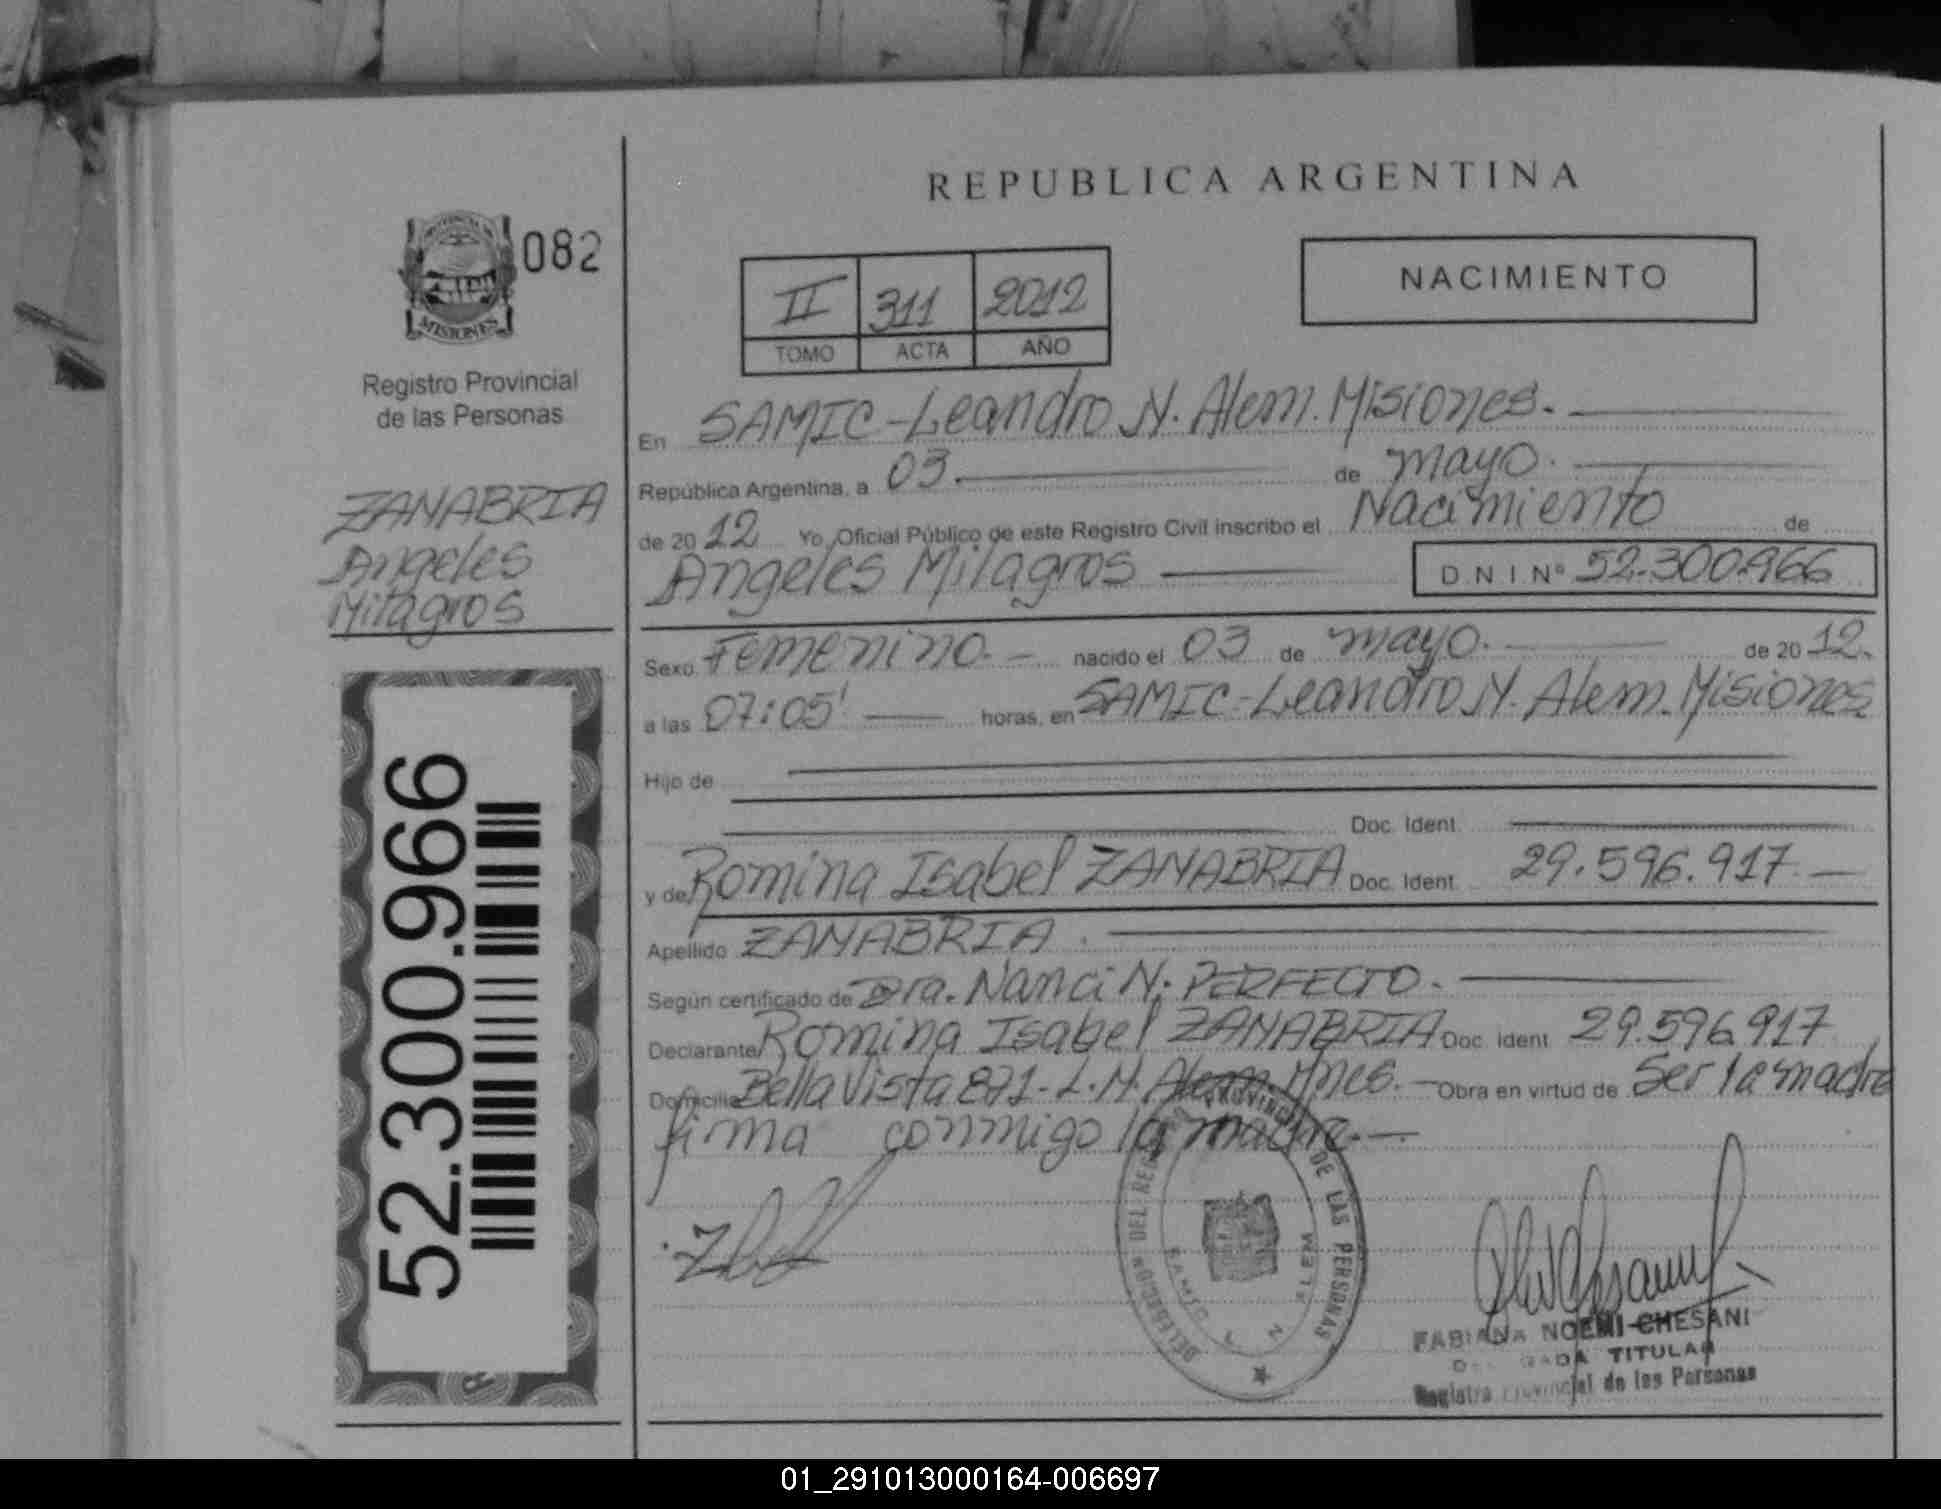 REPUBLICA ARGENTINA
082
PROVINCIA DE
MISIONES
Registro Provincial
de las Personas
II 311 2012
TOMO ACTA AÑO
NACIMIENTO
ZANABRIA
Angeles
Milagros
52.300.966
En SAMIC-Leandro N. Alem. Misiones.
República Argentina, a 03. de mayo.
de 2012 Yo, Oficial Público de este Registro Civil inscribo el Nacimiento de
Angeles Milagros D N I Nº 52.300.966
Sexo Femenino. nacido el 03 de mayo. de 2012.
a las 07:05' horas, en SAMIC-Leandro N. Alem. Misiones
Hijo de
Doc. Ident.
y de Romina Isabel ZANABRIA Doc. Ident. 29.596.917
Apellido ZANABRIA.
Según certificado de Dra. Nanci N. PERFECTO.
Declarante Romina Isabel ZANABRIA Doc. Ident 29.596.917
Domicilio Bella Vista 871-L.N. Alem. Mnes. Obra en virtud de Ser la madre
firma conmigo la madre.
DELEGACION DEL REG PROVINCIAL DE LAS PERSONAS
SAMIC L N ALEM
FABIANA NOEMI CHESANI
DELEGADA TITULAR
Registro Provincial de las Personas
01_291013000164-006697